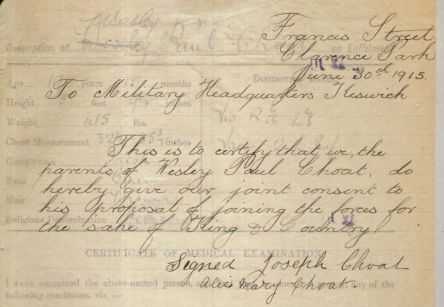 Wesley
Description of Wesley Paul Choat on Enlistment
Francis Street
Clarence Park
June 30th 1915
To Military Headquarters Keswick
Age years months
Height feet
Weight 115 lbs.
Chest Measurement 32
This is to certify that we, the
parents of Wesley Paul Choat, do
hereby give our joint consent to
his proposal of joining the forces for
the sake of King & Country
Signed Joseph Choat
Alice Mary Choat
CERTIFICATE OF MEDICAL EXAMINATION
I HAVE examined the above-named person, and
following conditions, viz.:—